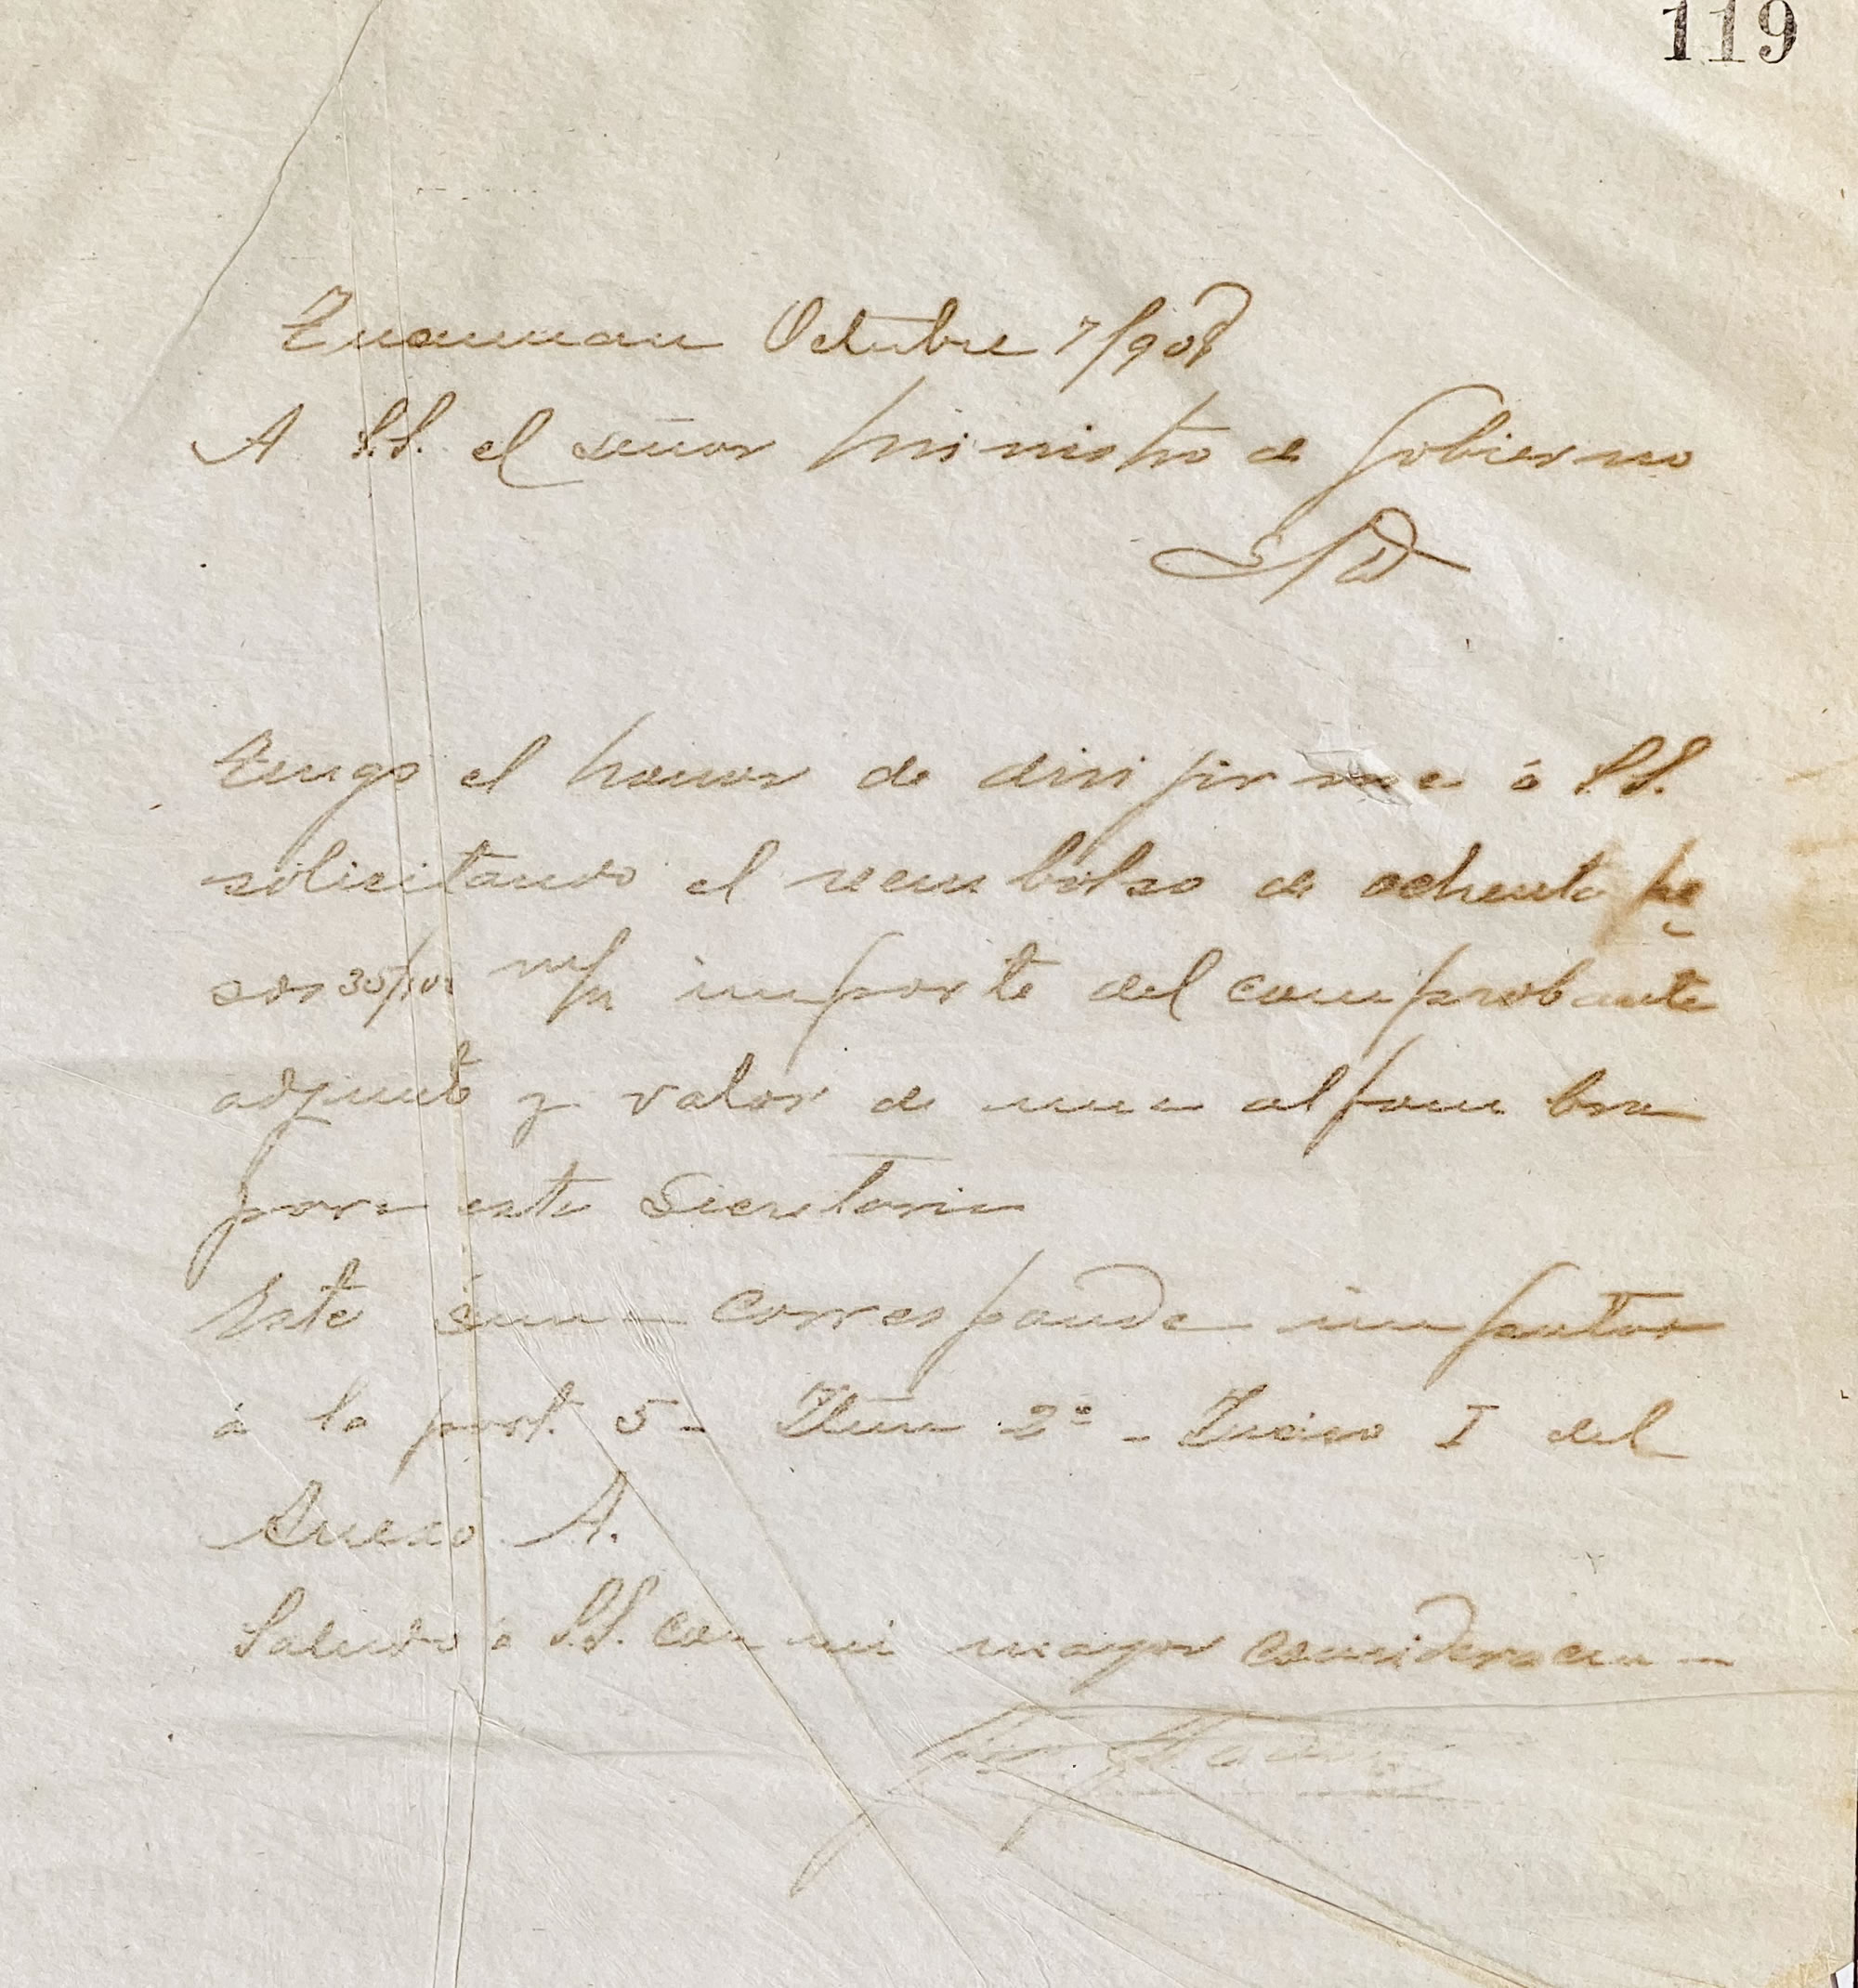 119
Tucuman Octubre 7/908
A S.S. el señor Ministro de Gobierno
S/D
Tengo el honor de dirijirme á S.S.
solicitando el reembolso de ochenta pe
sos 35/100 m/n importe del comprobante
adjunto y valor de una alfombra
para esta Secretaria
Esta suma corresponde imputar
á la part. 5 - Item 2º - Inciso I del
Anexo A.
Saludo á S.S. con mi mayor consideracion -